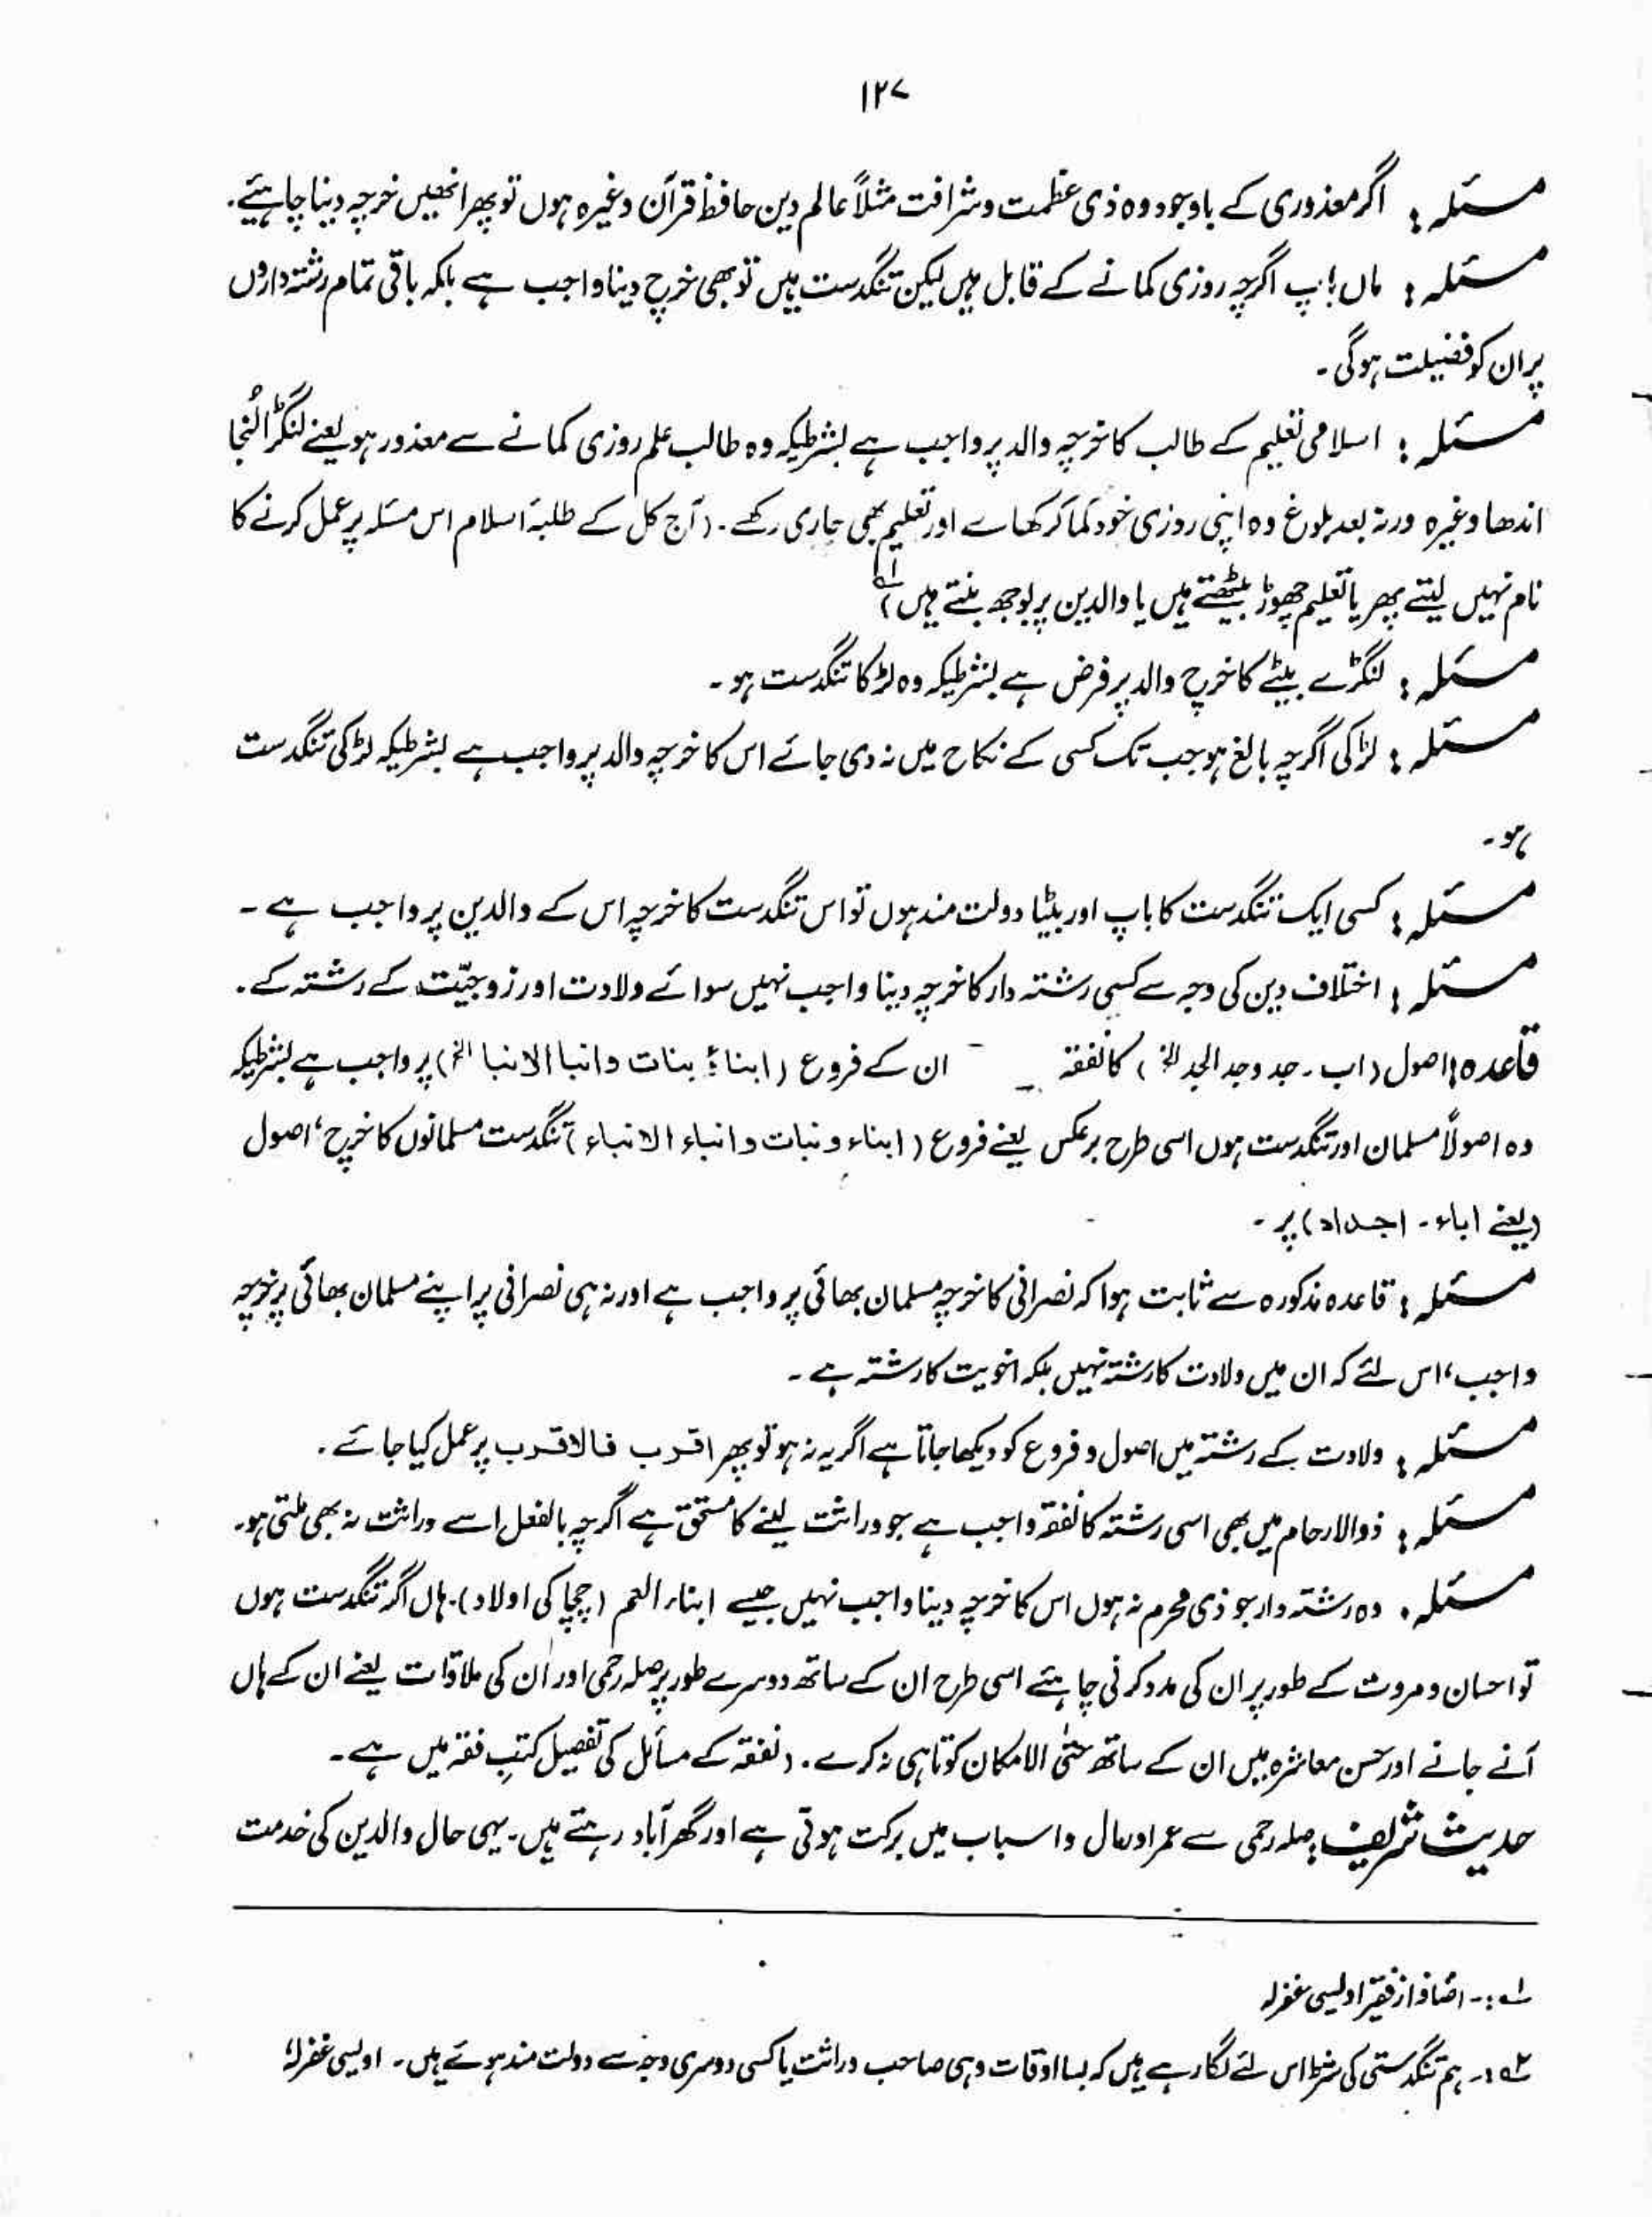 ۱۲۷
مسئلہ : اگر معذوری کے باوجود وہ ذی عظمت و شرافت مثلاً عالم دین حافظ قرآن وغیرہ ہوں تو پھر انھیں خرچہ دینا چاہیئے.
مسئلہ : ماں باپ اگرچہ روزی کمانے کے قابل ہیں لیکن تنگدست ہیں تو بھی خرچ دینا واجب ہے بلکہ باقی تمام رشتہ داروں
پر ان کو فضیلت ہوگی -
مسئلہ : اسلامی تعلیم کے طالب کا خرچہ والد پر واجب ہے بشرطیکہ وہ طالب علم روزی کمانے سے معذور ہو یعنے لنگڑا لُنجا
اندھا وغیرہ ورنہ بعد بلوغ وہ اپنی روزی خود کما کر کھائے اور تعلیم بھی جاری رکھے . (آج کل کے طلبۂ اسلام اس مسئلہ پر عمل کرنے کا
نام نہیں لیتے پھر یا تعلیم چھوڑ بیٹھتے ہیں یا والدین پر بوجھ بنتے ہیں) ۱ه
مسئلہ : لنگڑے بیٹے کا خرچ والد پر فرض ہے بشرطیکہ وہ لڑکا تنگدست ہو -
مسئلہ : لڑکی اگرچہ بالغ ہو جب تک کسی کے نکاح میں نہ دی جائے اس کا خرچہ والد پر واجب ہے بشرطیکہ لڑکی تنگدست
ہو -
مسئلہ : کسی ایک تنگدست کا باپ اور بیٹیا دولت مند ہوں تو اس تنگدست کا خرچہ اس کے والدین پر واجب ہے -
مسئلہ : اختلاف دین کی وجہ سے کسی رشتہ دار کا خرچہ دینا واجب نہیں سوائے ولادت اور زوجیّت کے رشتہ کے .
قاعدہ : اصول (اب - جد وجد الجد الخ) کا نفقہ ان کے فروع (ابناءُ بنات وانبا الانبا الخ) پر واجب ہے بشرطیکہ
وہ اصولاً مسلمان اور تنگدست ہوں اسی طرح برعکس یعنے فروع (ابناء و بنات وانباء الانباء) تنگدست مسلمانوں کا خرچ، اصول
(یعنے اباء - اجداد) پر -
مسئلہ : قاعدہ مذکورہ سے ثابت ہوا کہ نصرانی کا خرچہ مسلمان بھائی پر واجب ہے اور نہ ہی نصرانی پر اپنے مسلمان بھائی پر خرچہ
واجب، اس لئے کہ ان میں ولادت کا رشتہ نہیں بلکہ اخویت کا رشتہ ہے -
مسئلہ : ولادت کے رشتہ میں اصول و فروع کو دیکھا جاتا ہے اگر یہ نہ ہو تو پھر اقرب فالاقرب پر عمل کیا جائے .
مسئلہ : ذوالارحام میں بھی اسی رشتہ کا نفقہ واجب ہے جو وراثت لینے کا مستحق ہے اگرچہ بالفعل اسے وراثت نہ بھی ملتی ہو.
مسئلہ . وہ رشتہ دار جو ذی محرم نہ ہوں اس کا خرچہ دینا واجب نہیں جیسے ابناء العم (چچا کی اولاد). ہاں اگر تنگدست ہوں
تو احسان و مروت کے طور پر ان کی مدد کرنی چاہئے اسی طرح ان کے ساتھ دوسرے طور پر صلہ رحمی اور اُن کی ملاقات یعنے ان کے ہاں
آنے جانے اور حسن معاشرہ میں ان کے ساتھ حتیٰ الامکان کوتاہی نہ کرے . (نفقہ کے مسائل کی تفصیل کتبِ فقہ میں ہے -
حدیث شریف : صلہ رحمی سے عمر اور مال واسباب میں برکت ہوتی ہے اور گھر آباد رہتے ہیں - یہی حال والدین کی خدمت
۱ه :- اضافہ از فقیر اویسی غفرلہ
۲ه :- ہم تنگدستی کی شرط اس لئے لگا رہے ہیں کہ بسا اوقات وہی صاحب وراثت یا کسی دوسری وجہ سے دولت مند ہوئے ہیں - اویسی غفرلہٗ